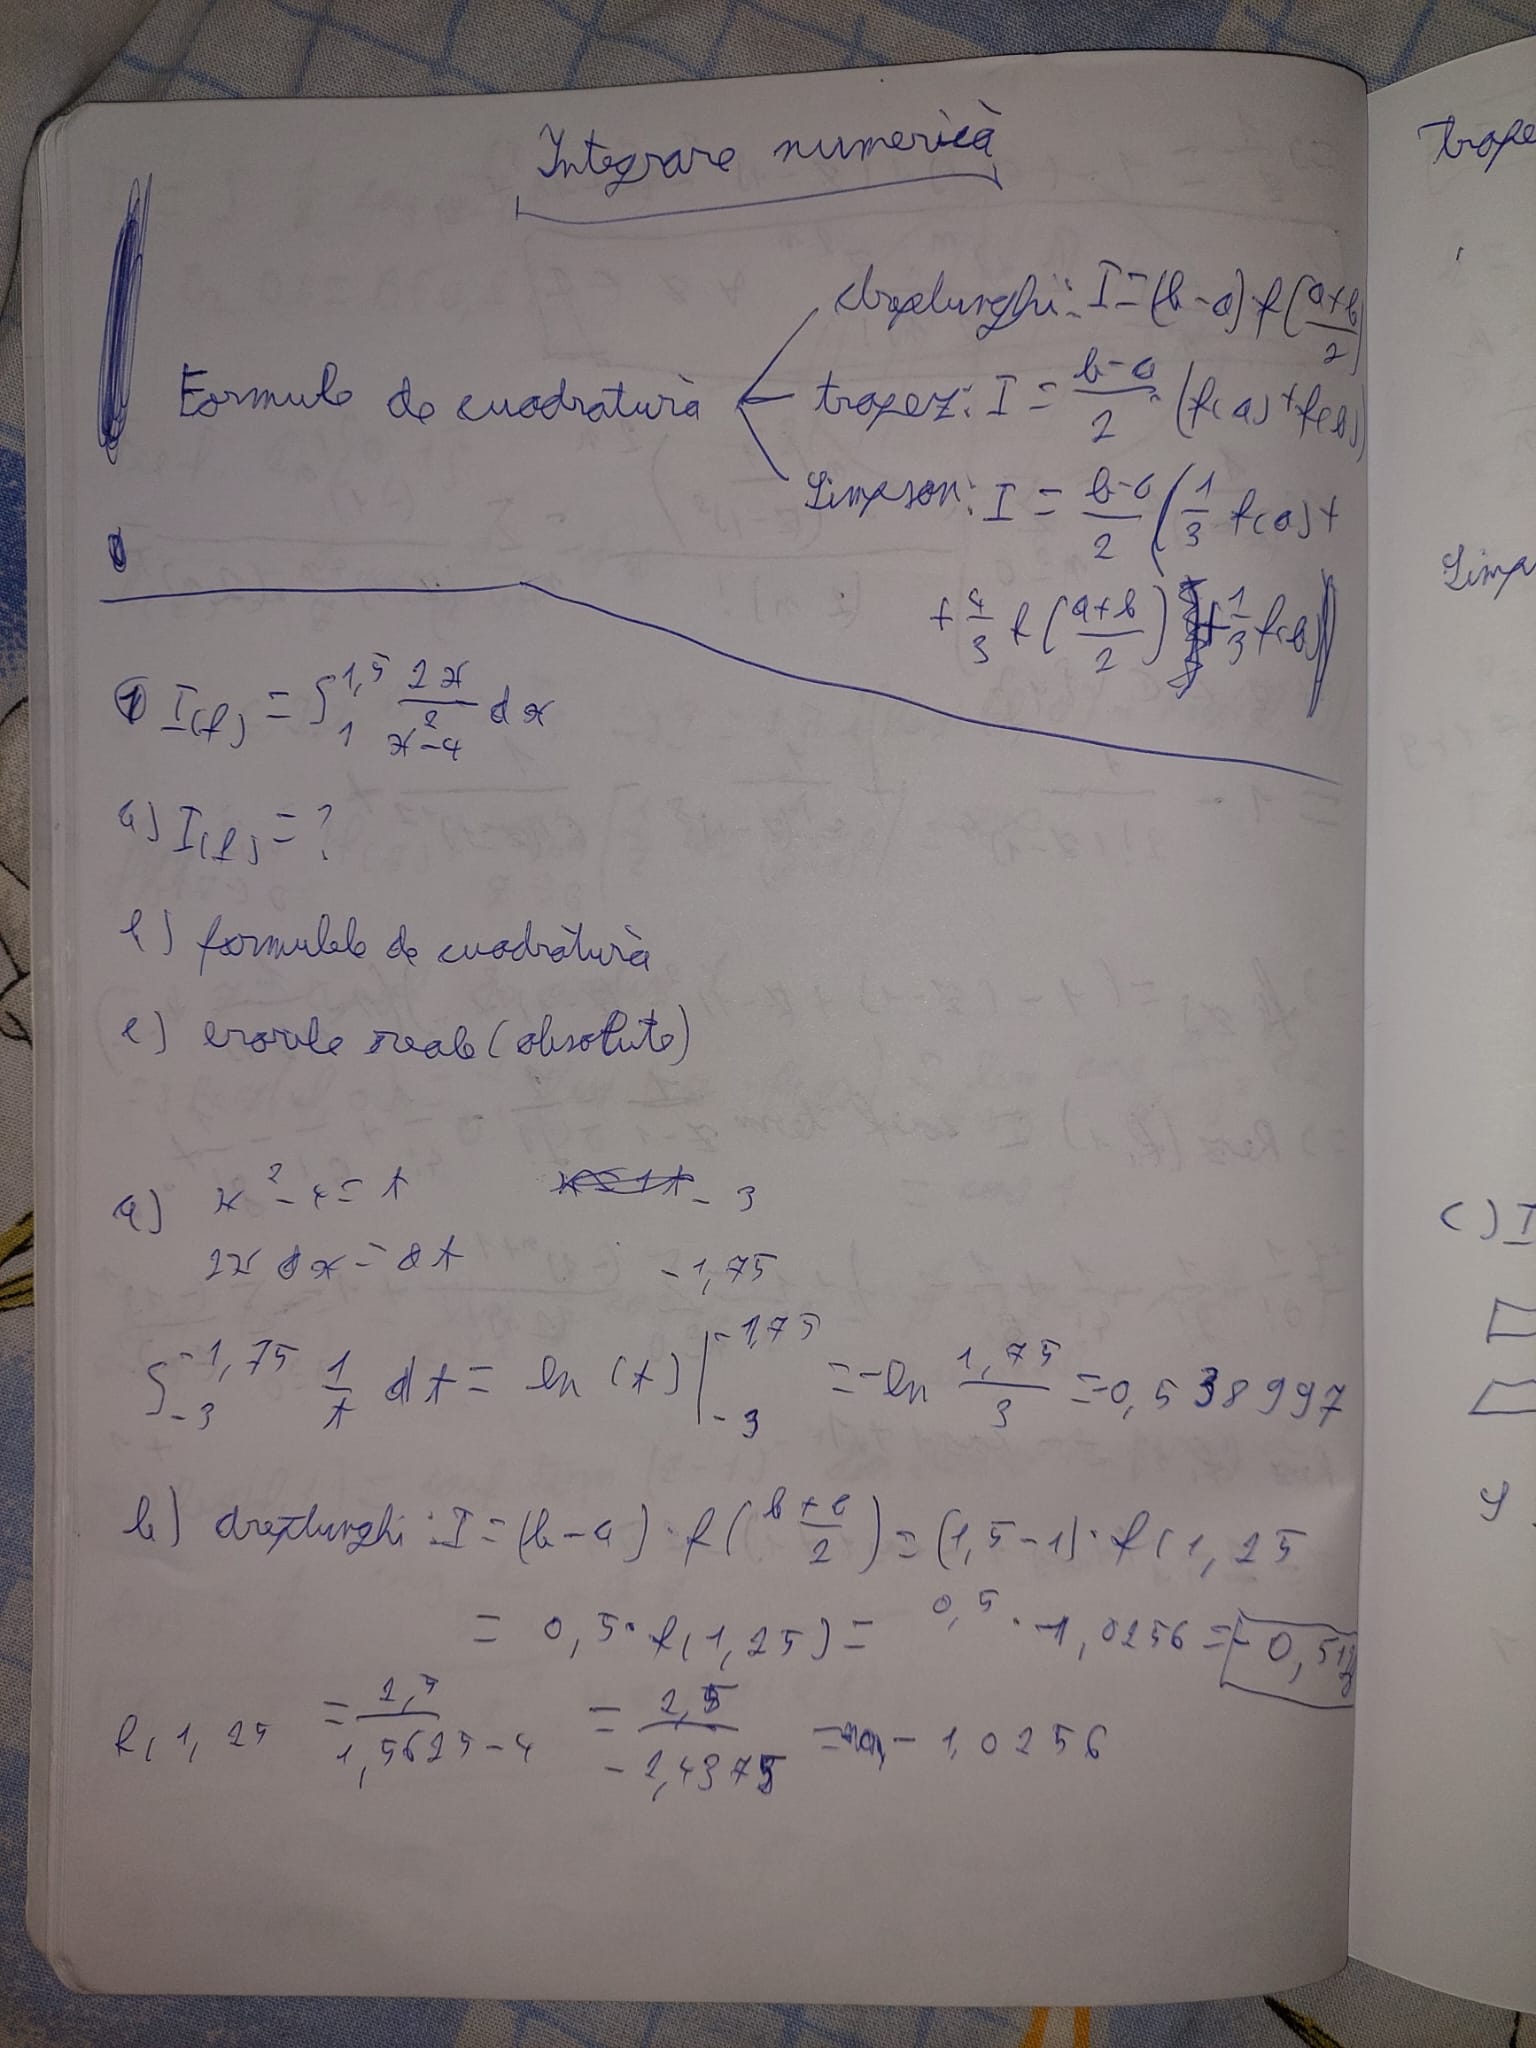 Integrare numerică
Formule de cuadratură
dreptunghi: I = (b-a) f(a+b/2)
trapez: I = b-a/2 · (f(a)+f(b))
Simpson: I = b-a/2 (1/3 f(a)+
+ 4/3 f(a+b/2) + 1/3 f(b))
① I(f) = ∫_1^1,5 2x/x²-4 dx
a) I(f) = ?
b) formulele de cuadratură
c) erorile reale (absolute)
a) x² - 4 = t -3
2x dx = dt -1,75
∫_-3^-1,75 1/t dt = ln(t) |_-3^-1,75 = -ln 1,75/3 = -0,538997
b) dreptunghi: I = (b-a) · f(b+a/2) = (1,5-1) · f(1,25
= 0,5 · f(1,25) = 0,5 · -1,0256 = -0,51
f(1,25 = 2,5/1,5625-4 = 2,5/-2,4375 = -1,0256
trape
Simp
c) I
S